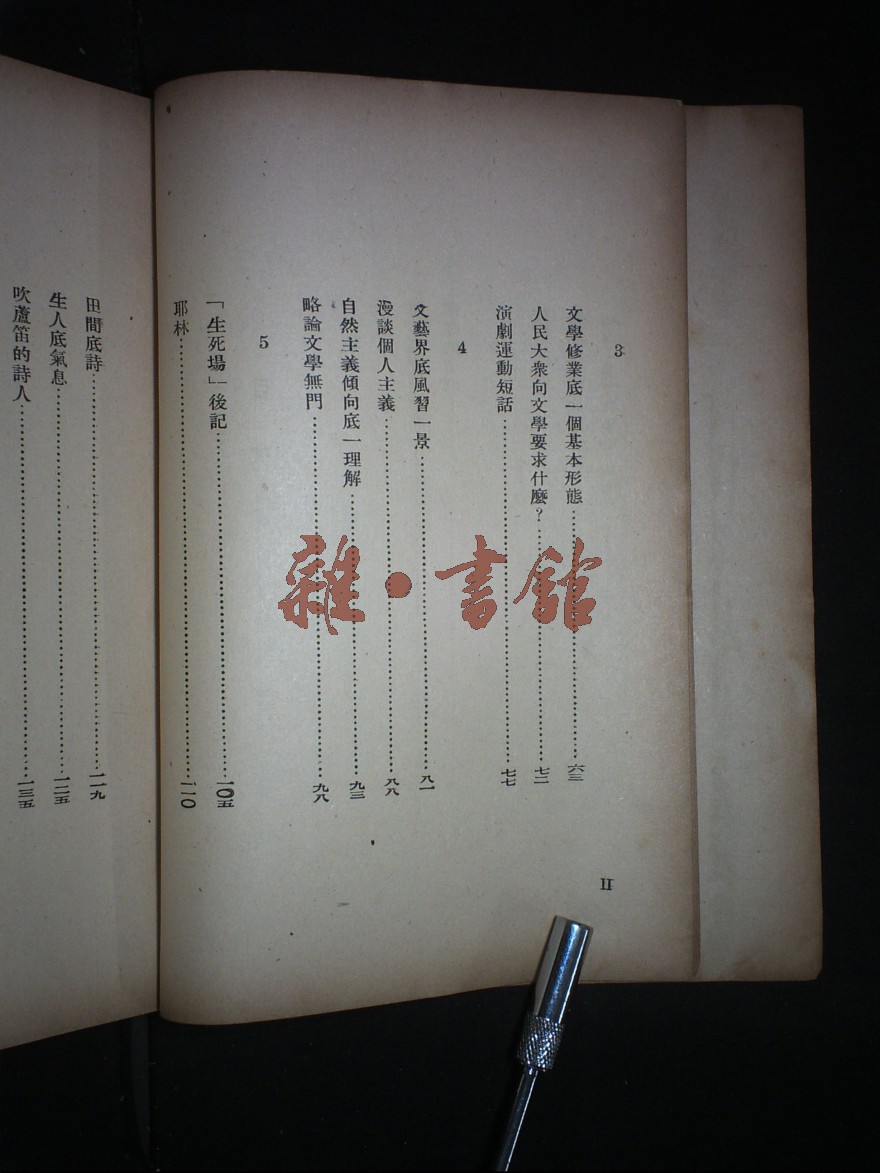 3
文學修業底一個基本形態……六三
人民大衆向文學要求什麼？……七二
演劇運動短話……七七
4
文藝界底風習一景……八一
漫談個人主義……八八
自然主義傾向底一理解……九三
略論文學無門……九八
5
「生死場」後記……一〇五
耶林……一一〇
II
田間底詩……一一九
生人底氣息……一二五
吹蘆笛的詩人……一三五
雜·書館